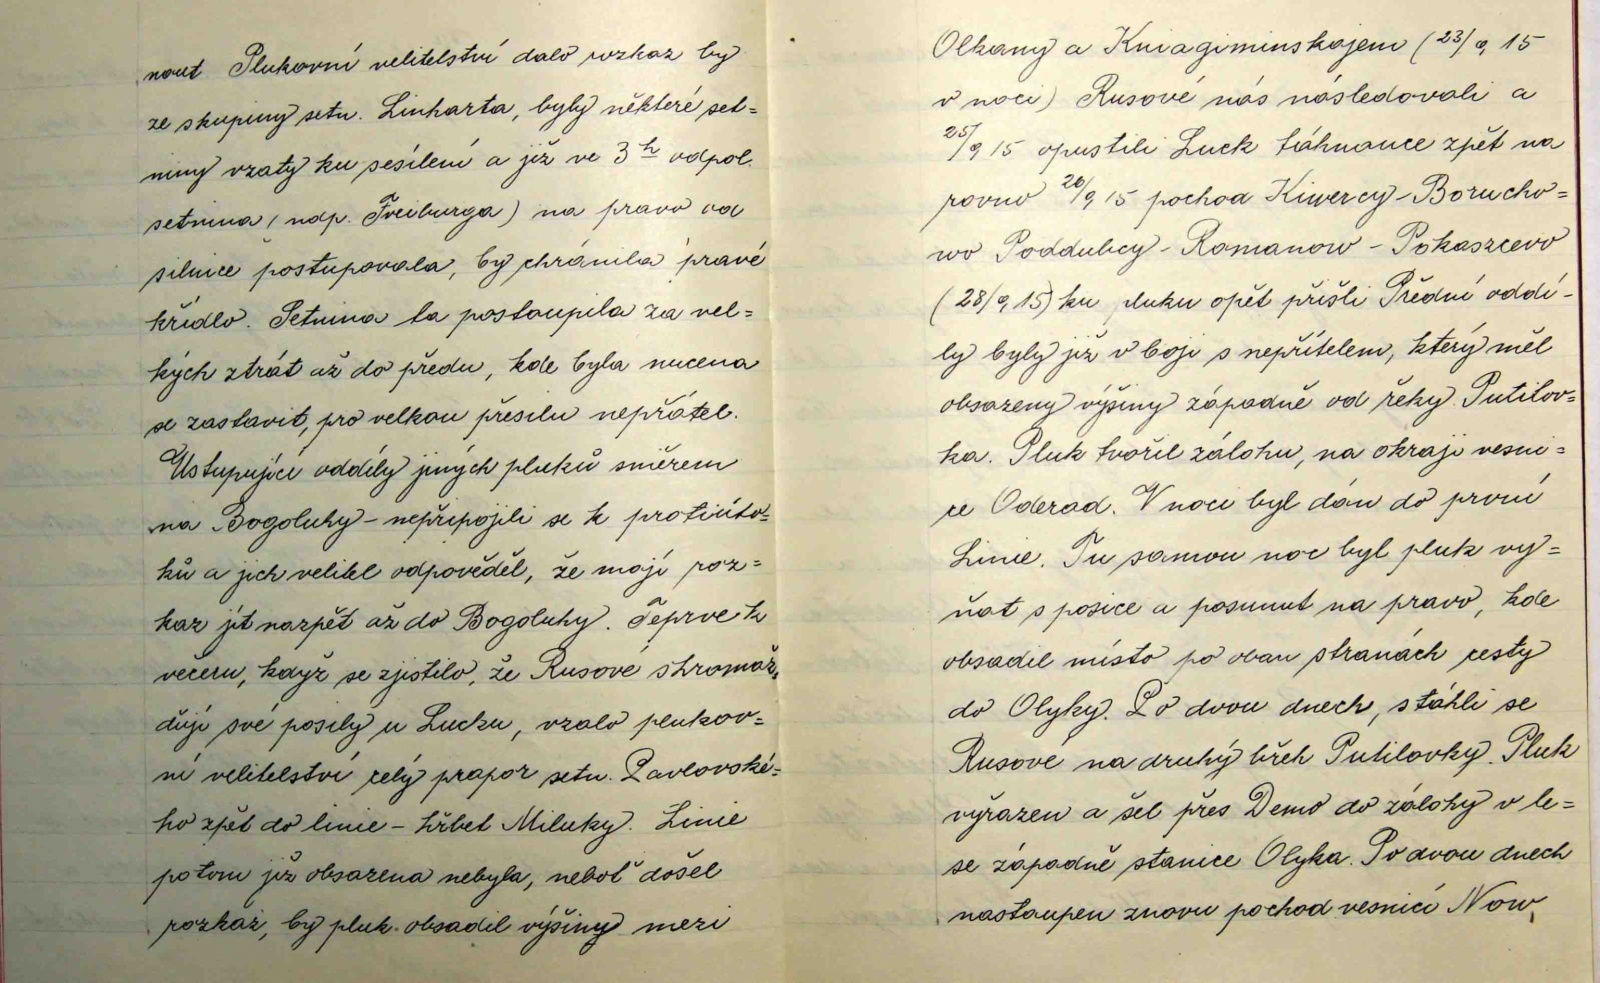 nout Plukovní velitelství dalo rozkaz by
ze skupiny setn. Linharta, byly některé set=
niny vzaty ku sesílení a již ve 3 h odpol.
setnina (ndp. Freiburga) na pravo od
silnice postupovala, by chránila pravé
křídlo. Setnina ta postoupila za vel=
kých ztrát až do předu, kde byla nucena
se zastavit, pro velkou přesilu nepřátel.
Ustupující oddíly jiných pluků směrem
na Bogoluhy - nepřipojili se k protiúto=
ků a jich velitel odpověděl, že mají roz=
kaz jít nazpět až do Bogoluhy. Teprve k
večeru, když se zjistilo, že Rusové shromaž=
ďují své posily u Lucku, vzalo plukov=
ní velitelství celý prapor setn. Pavlovské=
ho zpět do linie - hřbet Miluky. Linie
potom již obsazena nebyla, neboť došel
rozkaz, by pluk obsadil výšiny mezi
Olkany a Kniagiminskojem (23/9 15
v noci) Rusové nás následovali a
25/9 15 opustili Luck táhnouce zpět na
rovno 26/9 15 pochod Kiwercy - Borucho=
wo Poddubcy - Romanow - Pokaszcevo
(28/9 15) ku pluku opět přišli Přední oddí-
ly byly již v boji s nepřítelem, který měl
obsazeny výšiny západně od řeky Putilov=
ka. Pluk tvořil zálohu, na okraji vesni=
ce Oderad. V noci byl dán do první
Linie. Tu samou noc byl pluk vy=
ňat s posice a posunut na pravo, kde
obsadil místo po obou stranách cesty
do Olyky. Po dvou dnech, stáhli se
Rusové na druhý břeh Putilovky. Pluk
vyřazen a šel přes Demo do zálohy v le=
se západně stanice Olyka. Po dvou dnech
nastoupen znovu pochod vesnicí Now